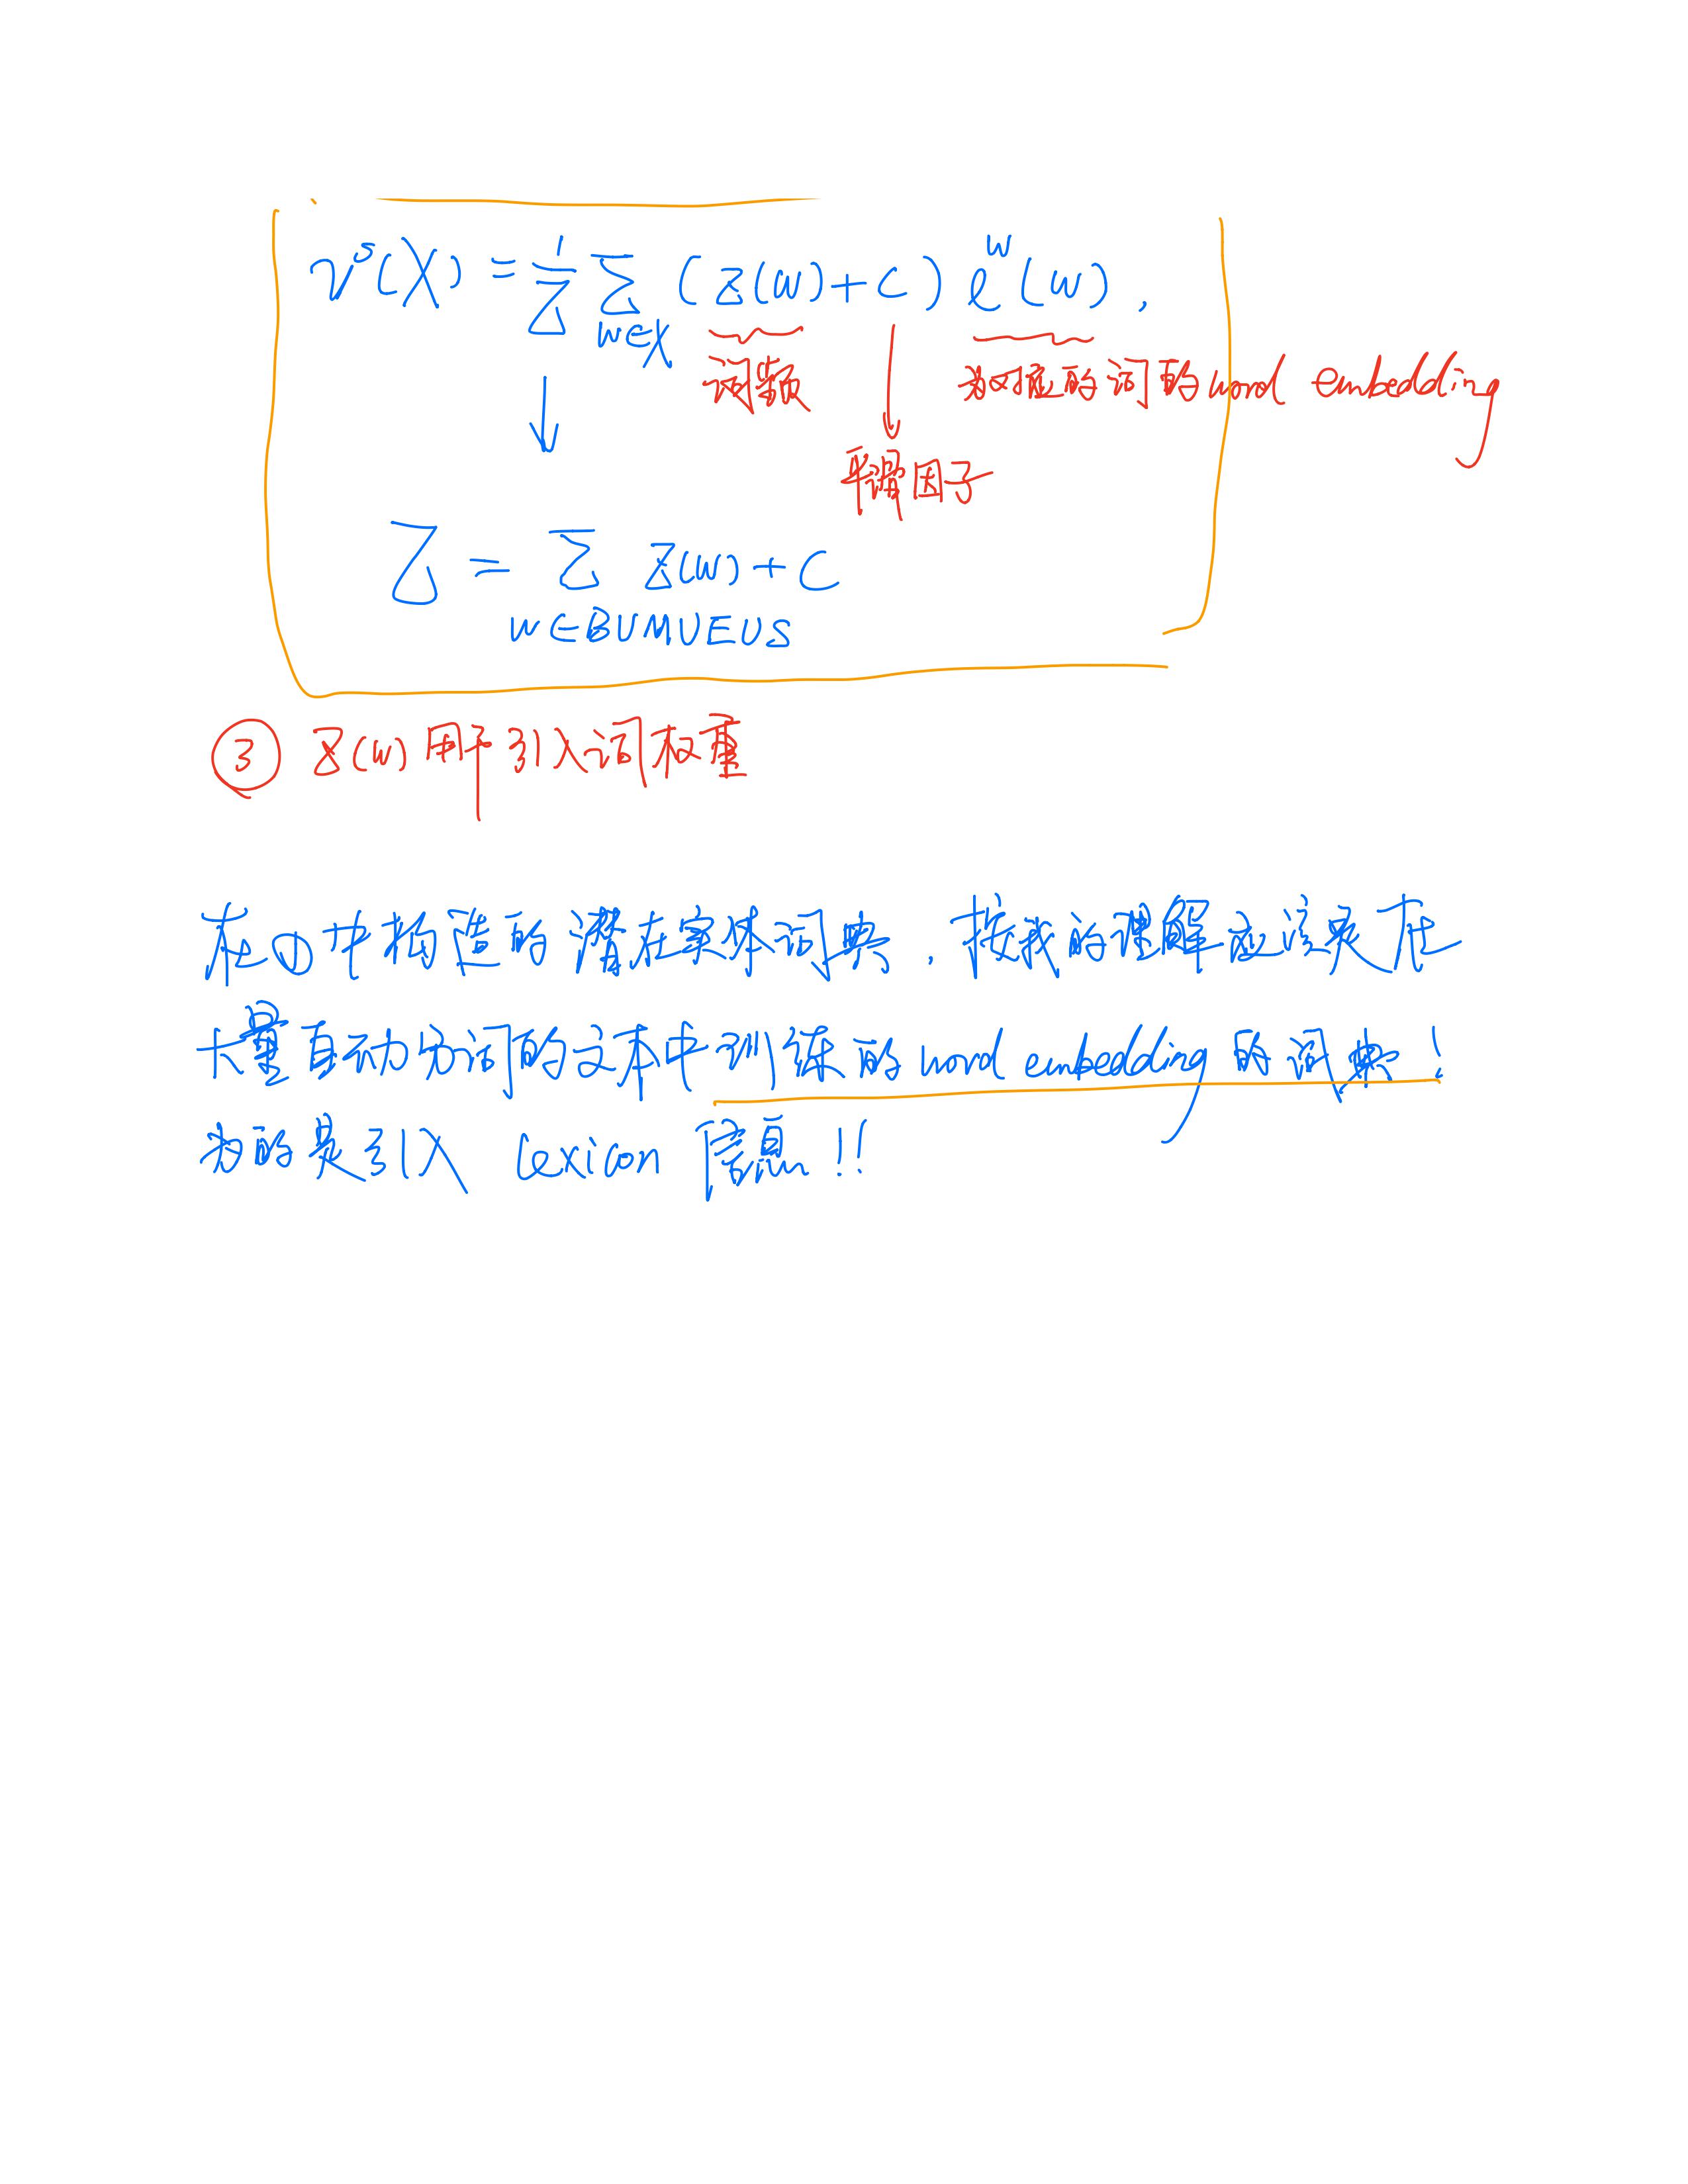 v^s(X) = 1/Z Σ_{w∈X} (z(w)+c) e^w(w),
词频
为对应的词的word embedding
平滑因子
Z = Σ_{w∈B∪M∪E∪S} z(w)+c
③ z(w)用于引入词权重
在①中构造的潜在实体词典,按我的理解应该是在
大量自动分词的文本中训练的word embedding的词典!
为的是引入 lexicon 信息!!